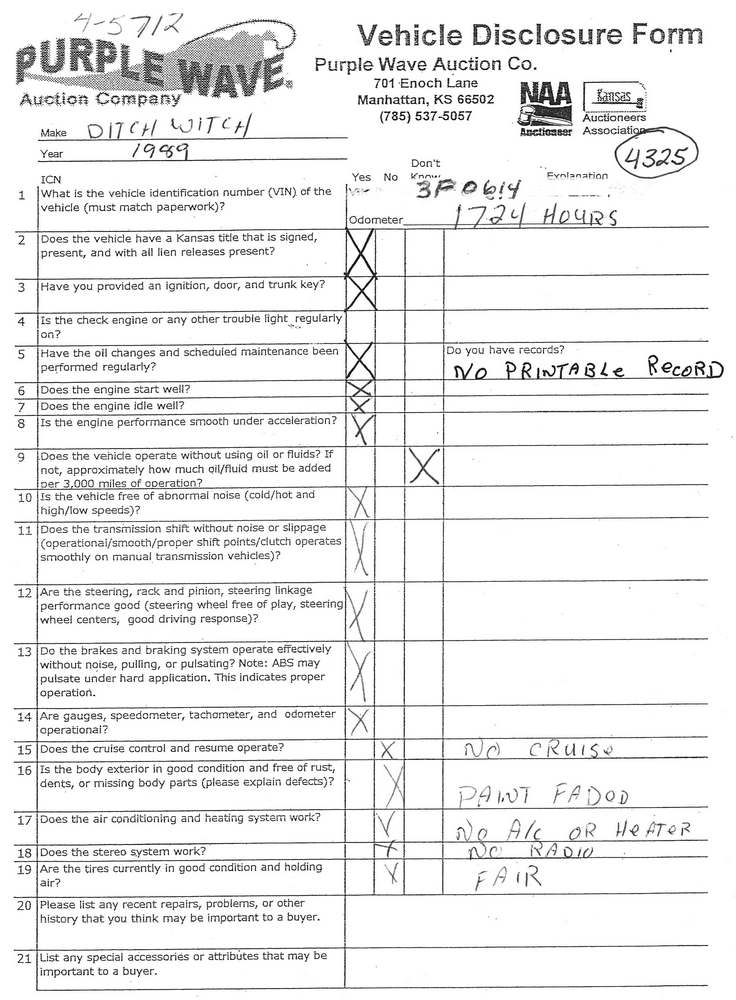 4-5712
PURPLE WAVE.
Auction Company
Vehicle Disclosure Form
Purple Wave Auction Co.
701 Enoch Lane
Manhattan, KS 66502
(785) 537-5057
NAA
Auctioneer
Kansas
Auctioneers
Association
Make DITCH WITCH
Year 1989
4325
ICN
Yes No Don't Know Explanation
1 What is the vehicle identification number (VIN) of the
vehicle (must match paperwork)?
3F0614
Odometer 1724 HOURS
2 Does the vehicle have a Kansas title that is signed,
present, and with all lien releases present? X
3 Have you provided an ignition, door, and trunk key? X
4 Is the check engine or any other trouble light regularly
on?
5 Have the oil changes and scheduled maintenance been
performed regularly? X
Do you have records?
NO PRINTABLE RECORD
6 Does the engine start well? X
7 Does the engine idle well? X
8 Is the engine performance smooth under acceleration? X
9 Does the vehicle operate without using oil or fluids? If
not, approximately how much oil/fluid must be added
per 3,000 miles of operation? X
10 Is the vehicle free of abnormal noise (cold/hot and
high/low speeds)? X
11 Does the transmission shift without noise or slippage
(operational/smooth/proper shift points/clutch operates
smoothly on manual transmission vehicles)? X
12 Are the steering, rack and pinion, steering linkage
performance good (steering wheel free of play, steering
wheel centers, good driving response)? X
13 Do the brakes and braking system operate effectively
without noise, pulling, or pulsating? Note: ABS may
pulsate under hard application. This indicates proper
operation. X
14 Are gauges, speedometer, tachometer, and odometer
operational? X
15 Does the cruise control and resume operate? X NO CRUISE
16 Is the body exterior in good condition and free of rust,
dents, or missing body parts (please explain defects)? X
PAINT FADOD
17 Does the air conditioning and heating system work? X NO A/C OR HEATER
18 Does the stereo system work? X NO RADIO
19 Are the tires currently in good condition and holding
air? X FAIR
20 Please list any recent repairs, problems, or other
history that you think may be important to a buyer.
21 List any special accessories or attributes that may be
important to a buyer.